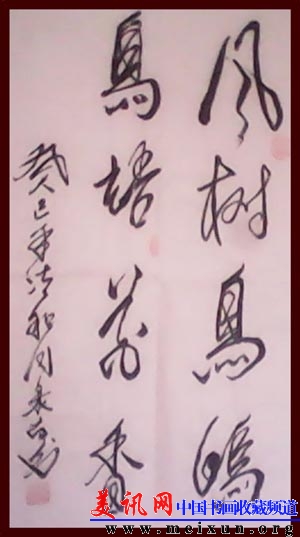 风树鸟鸣
鸟语花香
癸巳年清和月
美讯网 中国书画收藏频道
www.meixun.org